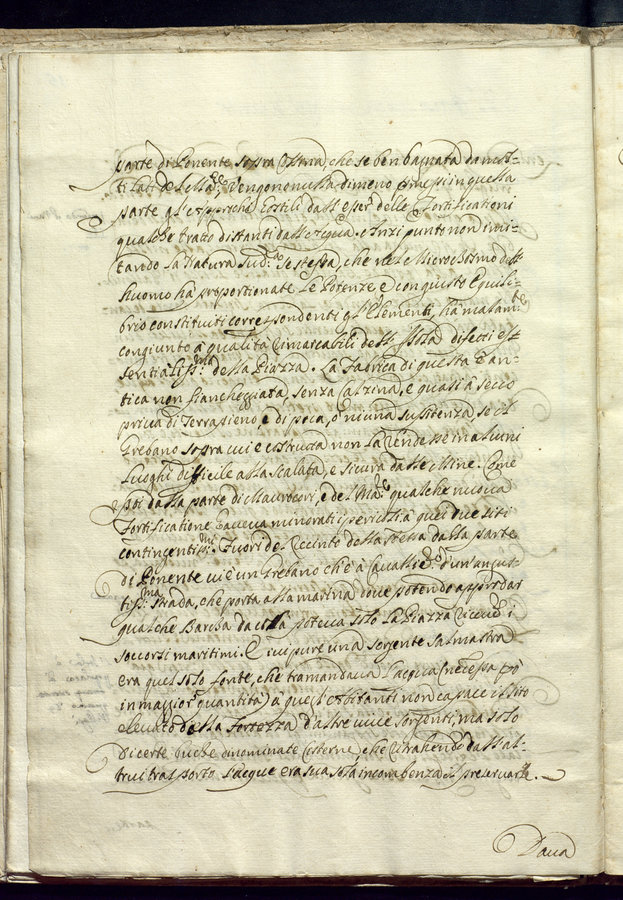 parte di Ponente sopra Collina, che se ben bagnata da mol-
ti lati dal Mare, vengono nulla dimeno presi in quella
parte gl'Approchi hostili dall'esser delle Fortificationi
qualche tratto distanti dall'Acqua. Anzi punto non imi-
tando la Natura sud.a se stessa, che nel Microchosmo dell'
Huomo ha proportionate le Potenze, e con giusto Equili-
brio constituiti correspondenti gl'Elementi, ha malam.te
congiunto à qualità rimarcabili dell' difetti es-
sentialiss.mi della Piazza. La Fabrica di questa è an-
tica non fiancheggiata, senza Calzina, e quasi à secco
priva di Terrapieno, e di poca, ò niuna sussistenza se il
Grebano sopra cui è costrutta non la rendesse in alcuni
Luoghi difficile alla scalata, e sicura dalle Mine. Come
poi dalla parte di e del Mare qualche nuova
Fortificatione haveva minorati i pericoli à quei due siti
contingentiss.mi. Fuori del Recinto della stessa dalla parte
di Ponente vi è un Grebano ch'è à Cavallier d'un'angus-
tiss.ma strada, che porta alla marina dove potendo approdar
qualche Barca da colà poteva solo la Piazza ricever i
soccorsi maritimi. E ivi pure una sorgente salmastra
era quel solo fonte, che tramandava l'acqua (necessa
in maggior quantità) à quegl'habitanti non capace il sito
elevato della Fortezza d'altre vive sorgenti, ma solo
di certe buche denominate Cisterne, che ritrahendo dall'al-
trui trasporto l'acque era sua sola incombenza il preservarle.
Dava